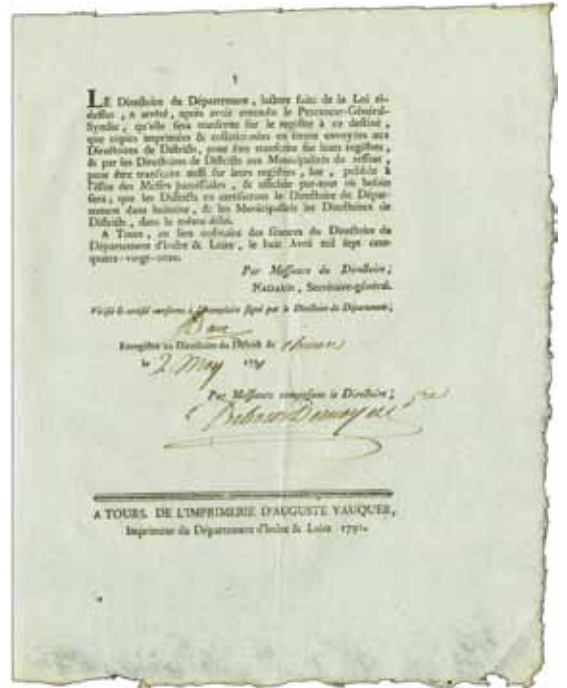 LE Directoire du Département, lecture faite de la Loi ci-
dessus, a arrêté, après avoir entendu le Procureur-Général-
Syndic, qu'elle sera transcrite sur le registre à ce destiné,
que copies imprimées & collationnées en seront envoyées aux
Directoires de Districts, pour être transcrite sur leurs registres,
& par les Directoires de Districts aux Municipalités du ressort,
pour être transcrite aussi sur leurs registres, lue, publiée à
l'issue des Messes paroissiales, & affichée par-tout où besoin
sera; que les Districts en certifieront le Directoire du Dépar-
tement dans huitaine, & les Municipalités les Directoires de
Districts, dans le même délai.
A Tours, en lieu ordinaire des séances du Directoire du
Département d'Indre & Loire, le huit Avril mil sept cent
quatre-vingt-onze.
Par Messieurs du Directoire;
Secrétaire-général.
Vérifié & certifié conforme à l'exemplaire signé par le Directoire du Département;
Enregistré au Directoire du District de Chinon
le 2 May 1791
Par Messieurs composant le Directoire;
A TOURS, DE L'IMPRIMERIE D'AUGUSTE VAUQUER,
Imprimeur du Département d'Indre & Loire 1791.